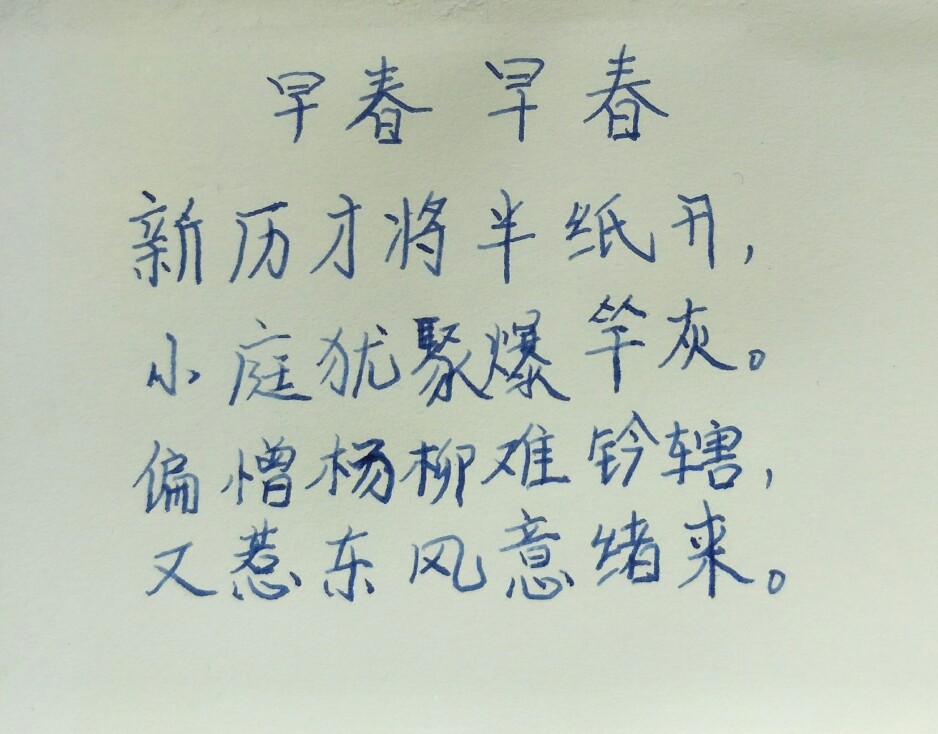 早春 早春
新历才将半纸开,
小庭犹聚爆竿灰。
偏憎杨柳难钤辖,
又惹东风意绪来。